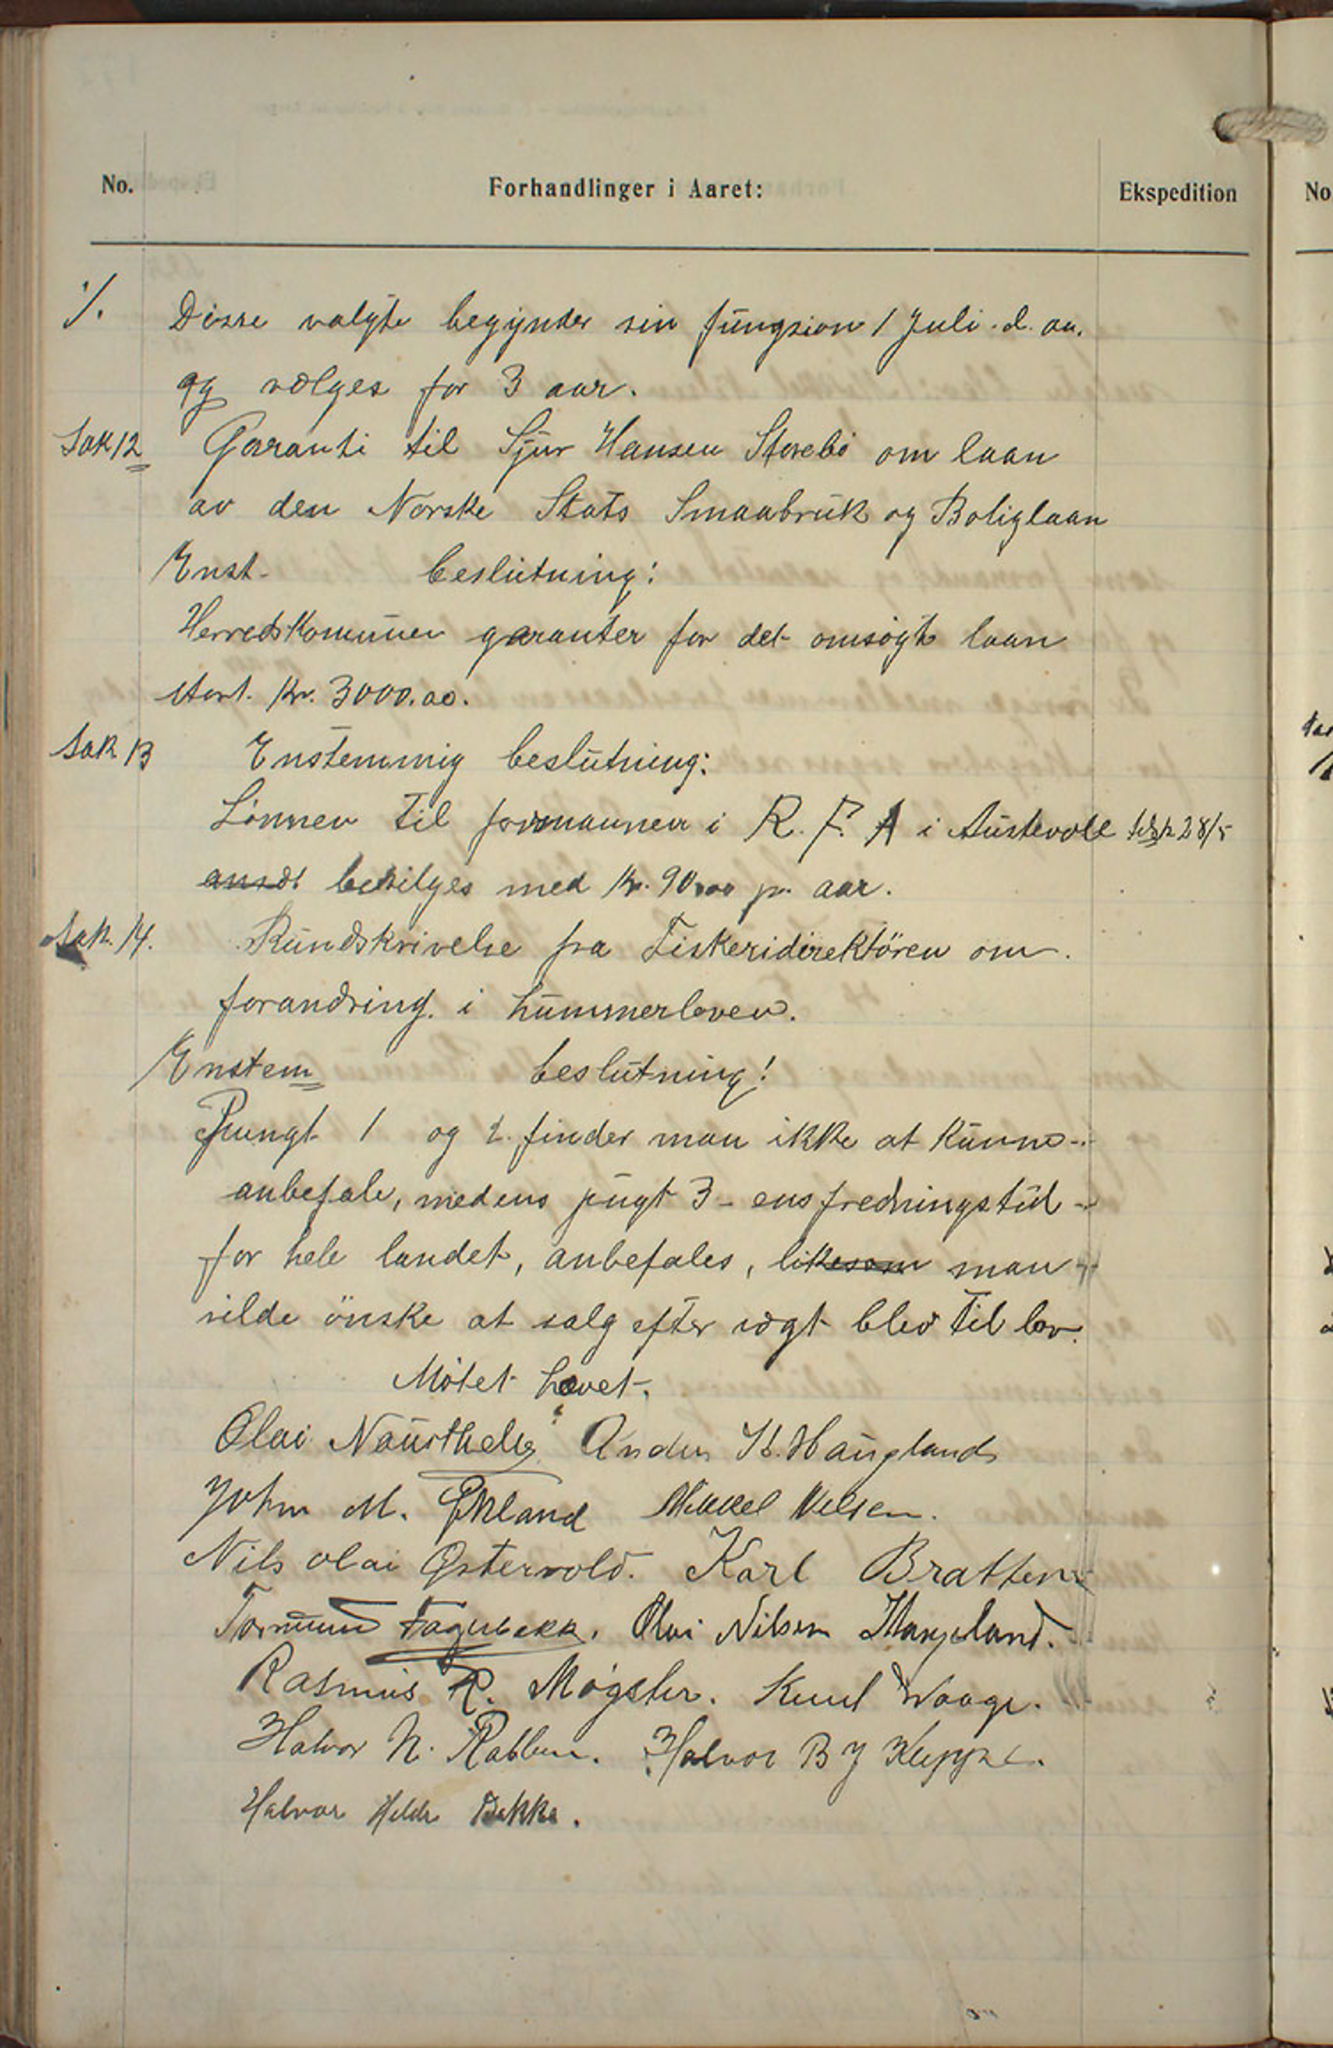 No. Forhandlinger i Aaret: Ekspedition No
·/. Disse valgte begynder sin fungsion 1 Juli d. aa.
og vælges for 3 aar.
Sak 12 Garanti til Sjur Hansen Storebö om laan
av den Norske Stats Smaabruk og Boliglaan
Enst. beslutning:
Herredskommunen garanter for det omsögte laan
stort. Kr. 3000.00.
Sak 13 Enstemmig beslutning:
Lönnen til formannen i R. F. A i Austevoll 28/5
ansæt bevilges med Kr. 90.00 pr. aar.
Sak. 14. Rundskrivelse fra Fiskeridirektören om
forandring. i hummerloven.
Enstem beslutning!
Pungt 1 og 2. finder man ikke at kunne
anbefale, medens pugt 3 - ens fredningstid -
for hele landet, anbefales, likesom man
vilde önske at salg efter vægt blev til lov.
Mötet hævet.
Olai Nausthelle Anders H. Haugland
John M. Økland Mikkel Nilsen.
Nils Olai Østervold. Karl Bratten
Tormund Fagerbakk. Olai Nilsen Haugland.
Rasmus R. Møgster. Knut Waage.
Halvor N. Rabben. Halvor B J Kleppe.
Halvor Helds Bakke.